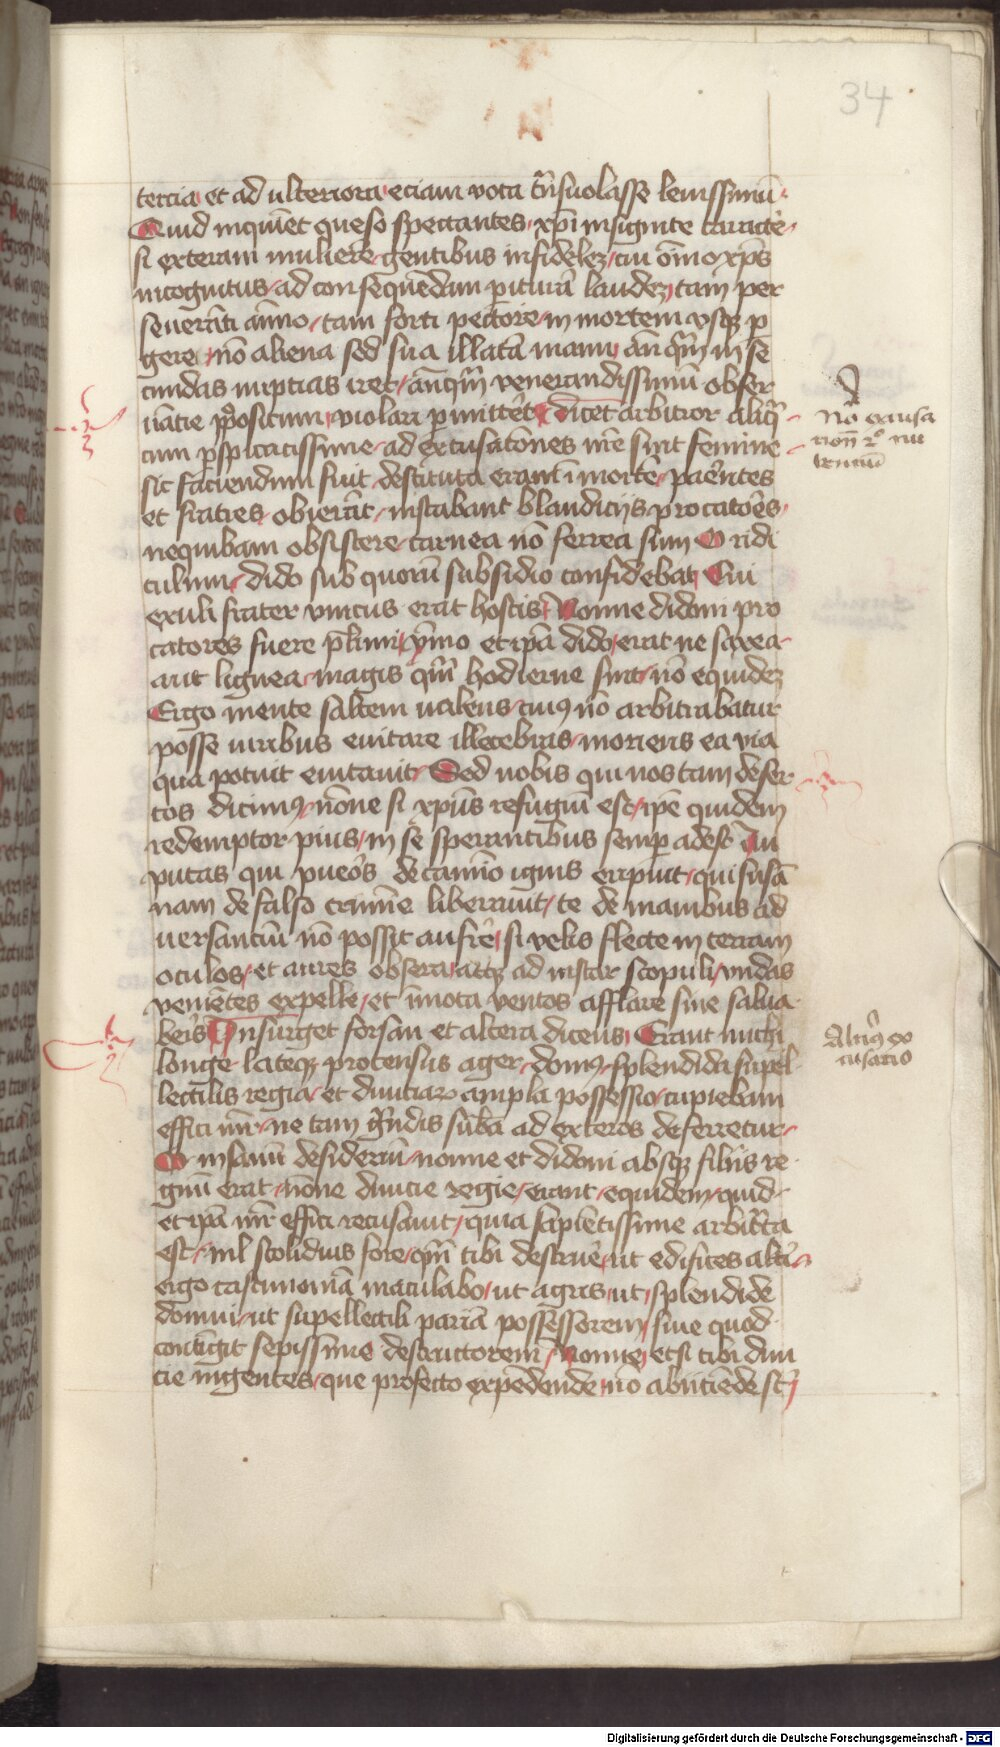 34
tercia et ad ulteriora eciam vota trãsuolasse leuissimũ
Quid inquiẽt queso spectantes xp̃i insignite caractẽ
si exteram muliere gentibus infidelez cui õnino xp̃s
incognitus ad consequẽdam periturã laudez tam per
seuerãti animo tam forti pectore in mortem vsqz p
gere nõ aliena sed sua illatã manu anq̃m in se
cundas nuptias iret anq̃m venerandissimũ obser
uãtie p̃positum violari pmittet dicet arbitror aliq̃
cum pspicacissime ad excusatões nr̃e sint femine
sic faciendum fuit destituta eram ĩ morte parẽtes
et fratres obierãt instabant blandicijs procatores
nequibam obsistere carnea nõ ferrea sum O ridi
culum dido sub quorũ subsidio confidebat Cui
exuli frater vnicus erat hostis Nonne didoni pro
catores fuere plurimi ymo et ip̃a dido erat ne saxea
aut lignea magis q̃m hodierne sint nõ equidez
Ergo mente saltem ualens cuiq nõ arbitrabatur
posse uiribus euitare illecebras moriens ea via
qua potuit euitauit Sed nobis qui nos tam deser
tos dicimq nõne si xp̃us refugiũ est ip̃e quidem
redemptor pius in se sperantibus semp adest An
putas qui pueros de camino ignis eripuit qui susã
nam de falso crimine liberauit te de manibus ad
uersantiũ nõ possit aufrẽ si velis flecte in terram
oculos et aures obsera atqz ad instar scopuli vndas
venientes expelle et ĩmota ventos afflare sine salua
beris Insurget forsan et altera dicens Erant michi
longe lateqz protensus ager domq splendida supel
lectilis regia et diuiciarum ampla possessio cupiebam
effici mr̃ ne tam grãdis sub̃a ad exteros deferretur
O insanũ desideriũ nonne et didoni absqz filijs re
gnũ erat nõne diuicie regie erant equidem quid
et ip̃a mr̃ effici recusauit quia sapiẽtissime arbitrata
est nil stolidius fore q̃m tibi destruẽ ut edifices altĩ
ergo castimoniã maculabo ut agris ut splendide
domui ut supellectili pariã possessorem siue quod
contingit sepissime destructorem Nonne etsi tibi diui
cie ingentes que profecto expẽdende nõ abiiciẽde st̃
Nõ excusa
cionẽ
Altiq ex
cusatio
Digitalisierung gefördert durch die Deutsche Forschungsgemeinschaft - DFG